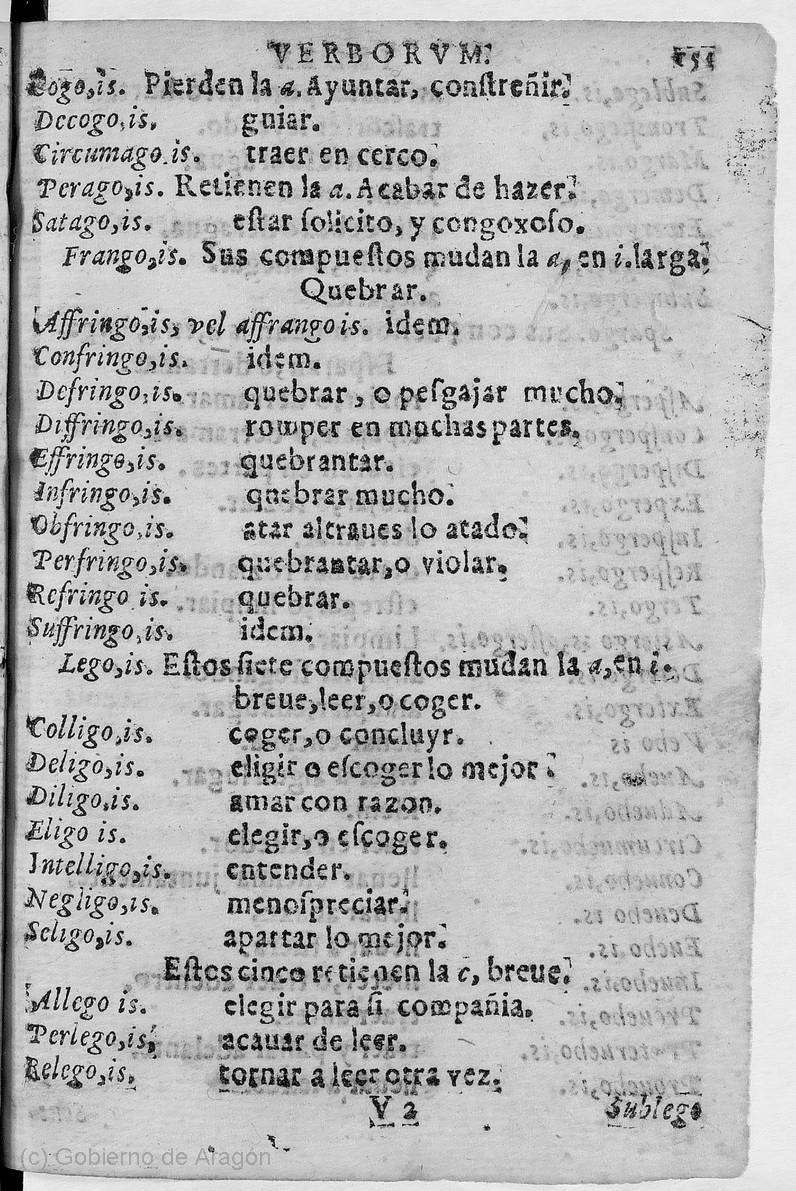 VERBORVM.
Cogo,is. Pierden la a. Ayuntar, conſtreñir.
Decogo,is. guiar.
Circumago.is. traer en cerco.
Perago,is. Retienen la a. Acabar de hazer.
Satago,is. eſtar ſolicito, y congoxoſo.
Frango,is. Sus compueſtos mudan la a, en i.larga.
Quebrar.
Affringo,is, vel affrango is. idem.
Confringo,is. idem.
Defringo,is. quebrar, o peſgajar mucho.
Diffringo,is. romper en muchas partes.
Effringo,is. quebrantar.
Infringo,is. quebrar mucho.
Obfringo,is. atar altraues lo atado.
Perfringo,is. quebrantar,o violar.
Refringo is. quebrar.
Suffringo,is. idem.
Lego,is. Eſtos ſiete compueſtos mudan la a,en i.
breue,leer,o coger.
Colligo,is. coger,o concluyr.
Deligo,is. eligir o eſcoger lo mejor.
Diligo,is. amar con razon.
Eligo is. elegir,o eſcoger.
Intelligo,is. entender.
Negligo,is. menoſpreciar.
Seligo,is. apartar lo mejor.
Eſtos cinco retienen la e, breue.
Allego is. elegir para ſi compañia.
Perlego,is, acauar de leer.
Relego,is, tornar a leer otra vez.
V 2 Sublego
(c) Gobierno de Aragón